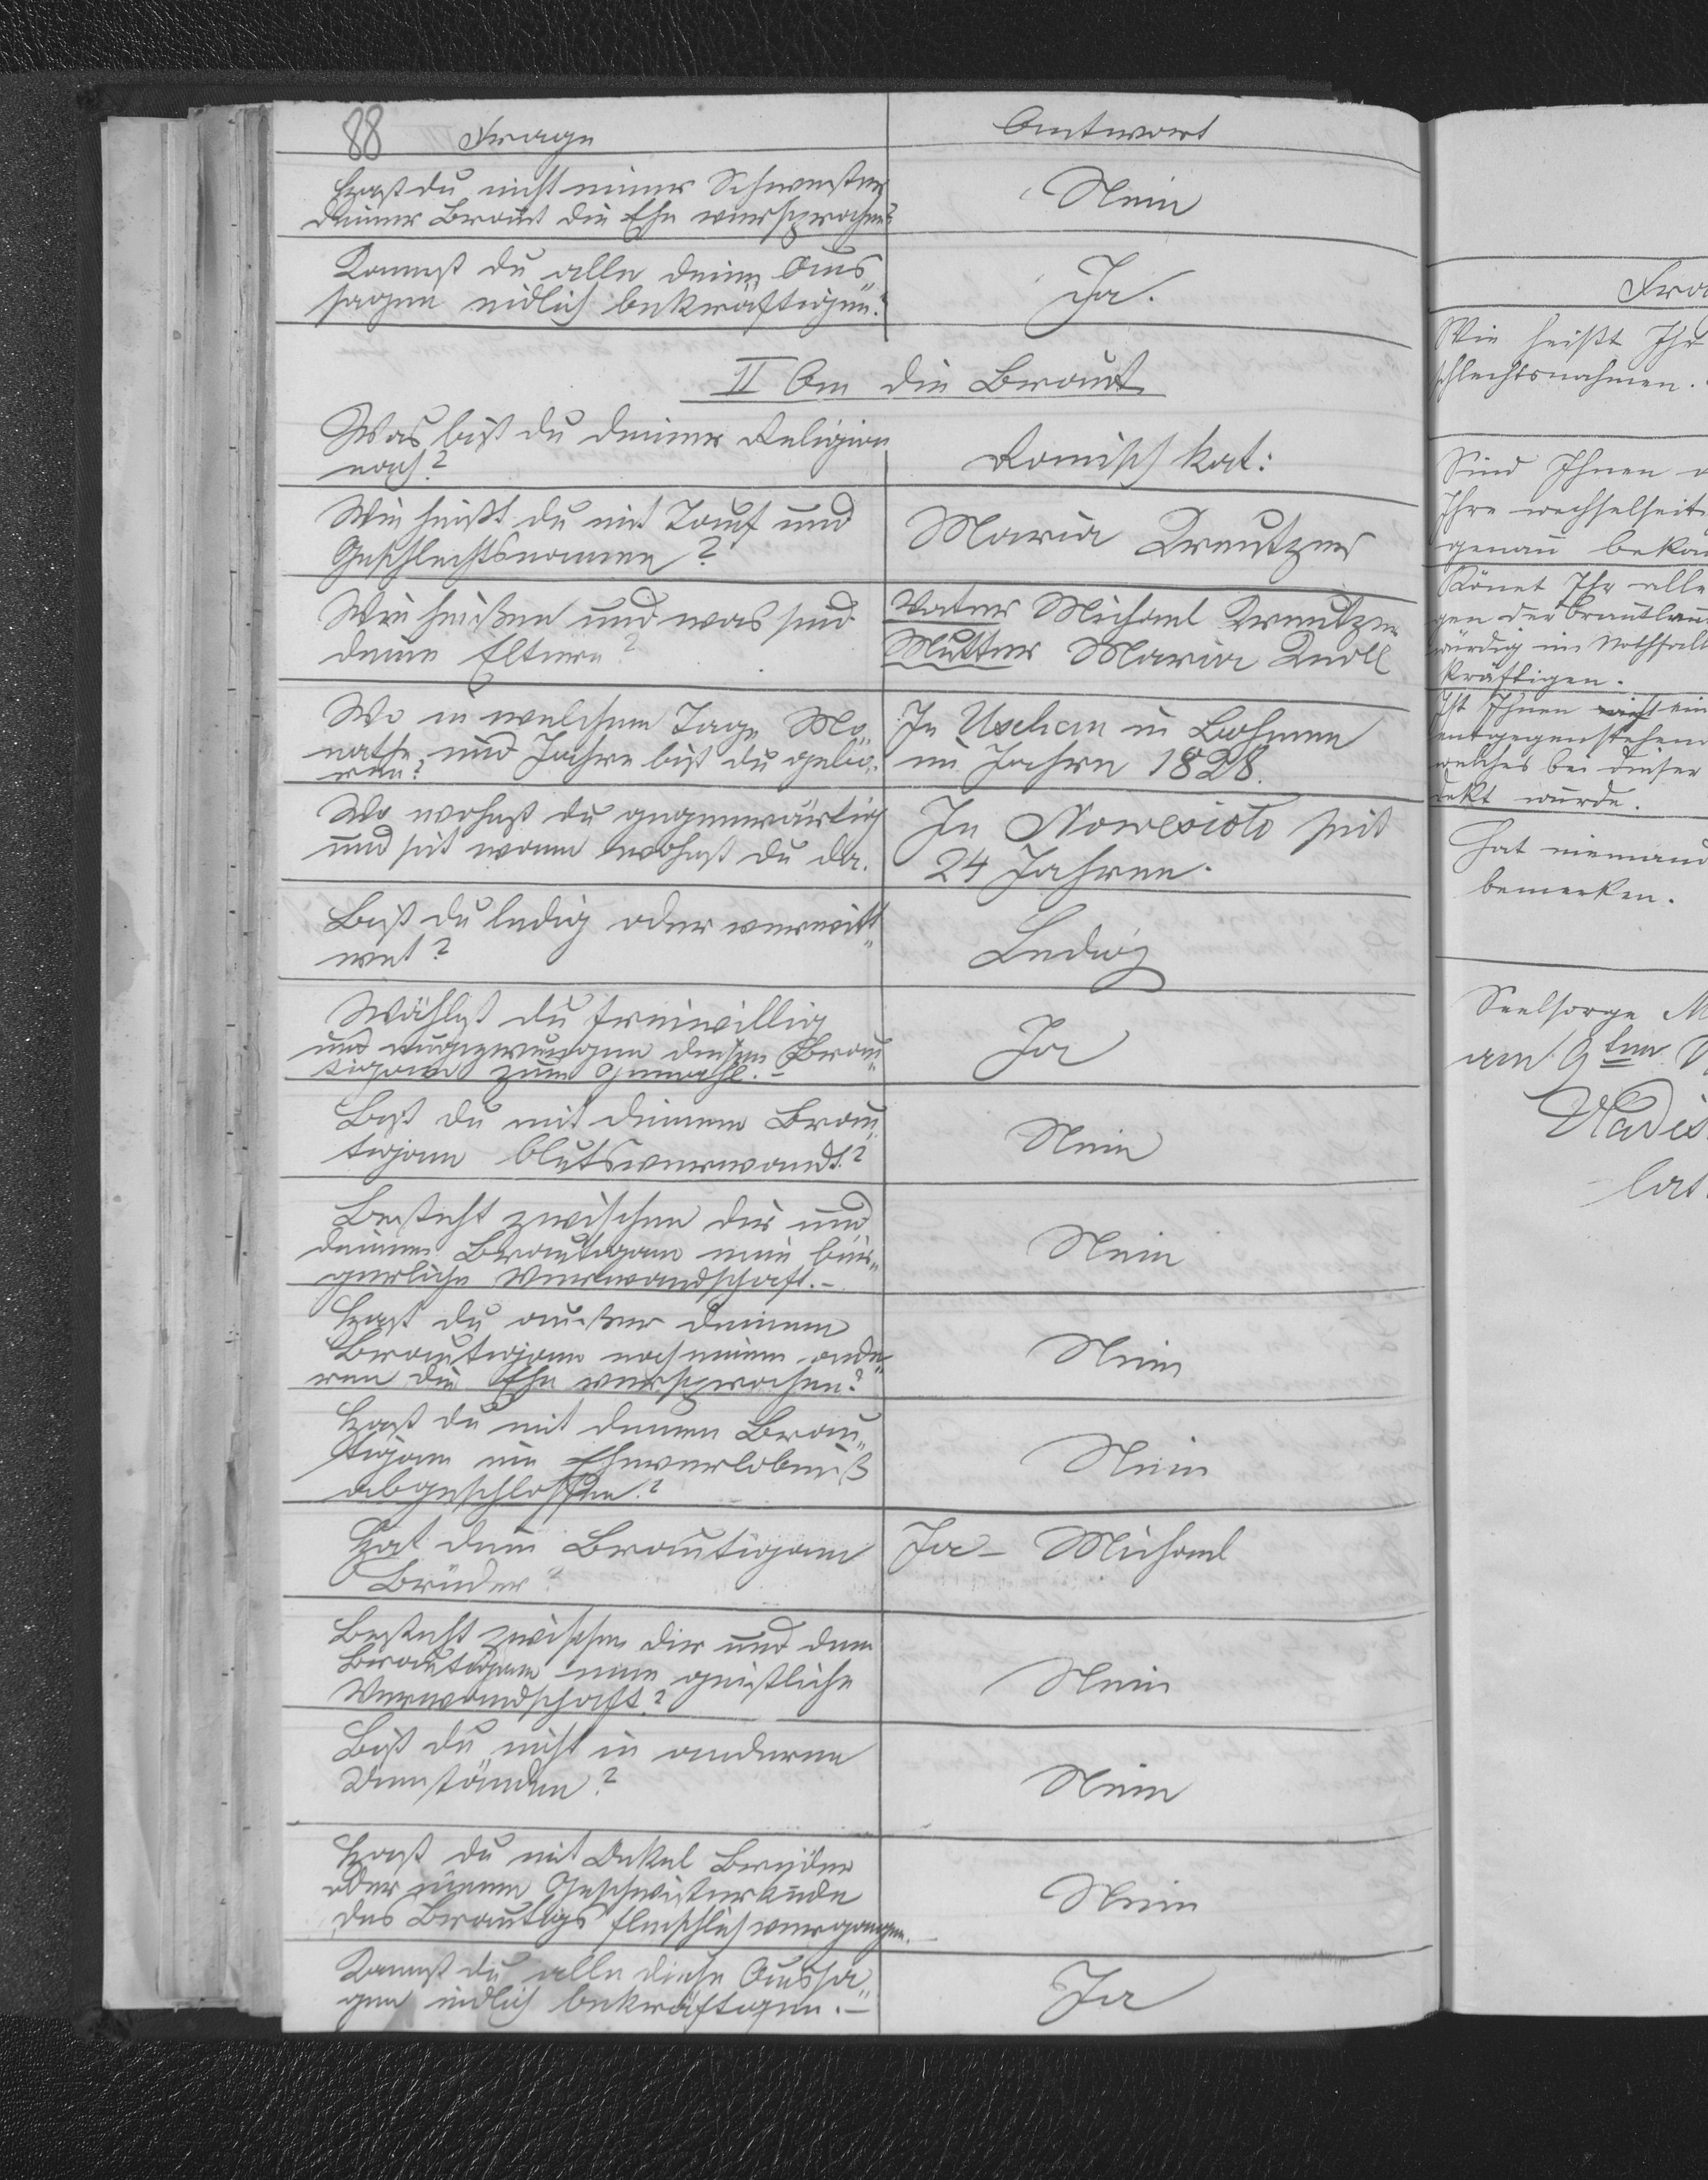 88 Frage Antwort
Hast du nicht einer Schwester
deiner Braut die Ehe versprochen?
Nein
Kannst du alle deine Aus„
sagen eidlich bekräftigen?
Ja.
II An die Braut
Was bist du deiner Religion
nach?
Romisch kat:
Wie heißt du mit Tauf und
Geschlechtsnamen?
Maria Kreutzer
Wie heißen und was sind
deine Eltern?
Vater Michael Kreutzer
Mutter Maria Knoll
Wo in welchem Tage Mo„
nathe und Jahre bist du gebo„
ren?
In Uschan in Bohmen
im Jahre 1828.
Wo wohnst du gegenwärtig
und seit wann wohnst du da.
In Nowesiolo seit
24 Jahren.
Bist du ledig oder verwitt„
wet?
Ledig
Wählst du freiwillig
und ungezwungen diesen Brau„
tigam zum Gemahl.–
Ja
Bist du mit deinem Brau„
tigam blutsverwandt?
Nein
Besteht zwischen dir und
deinem Brautigam eine bür„
gerliche Verwandschaft.–
Nein
Hast du außer deinem
Brautigam noch einem ande„
ren die Ehe versprochen?
Nein
Hast du mit deinem Brau„
tigam ein Eheverlobniß
abgeschlossen?
Nein
Hat dein Brautigam
Brüder?
Ja – Michael
Besteht zwischen dir und dem
Brautigam eine geistliche
Verwandschaft?
Nein
Bist du nicht in anderen
Umständen?
Nein
Hast du mit Onkel Brüder
oder einem Geschwisterkinde
des Brautigs fleischlich vergangen.
Nein
Kannst du alle diese Aussa„
gen eidlich bekräftigen.–
Ja
Fra
Wie heißt Ihr
schlechtsnahmen.
Sind Ihnen
Ihre wechselseit
genau beka
Könet Ihr alle
gen der Brautleu
würdig im Nothfall
kräftigen.
Ist Ihnen nicht ein
entgegenstehen
welches bei dieser
dekt wurde.
Hat niemand
bemerken.
Seelsorge M
am 9ten
Vladis
lat